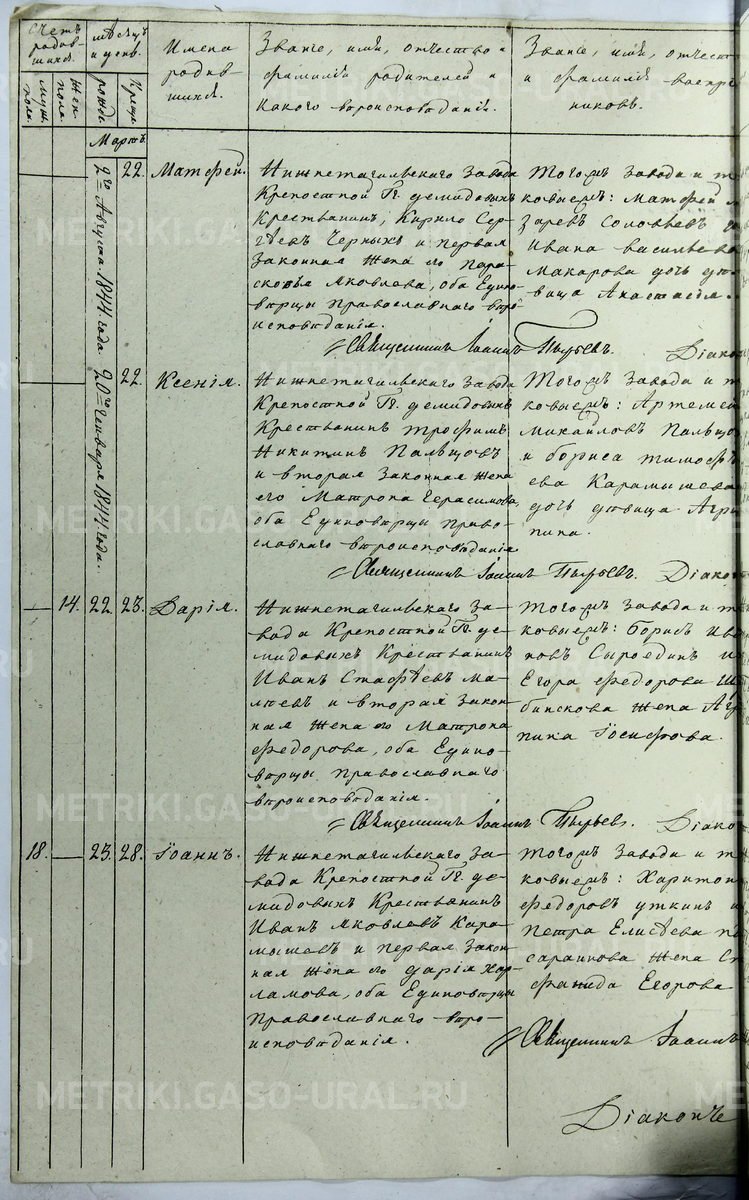 Счетъ родив-
шихся.
муж. пола.
жен. пола.
мѣсяцъ и день.
рожд.
креще.
Имена
родив-
шихся.
Званіе, имя, отчество и
фамилія родителей и
какого вѣроисповѣданія.
Званіе, имя, отчест
и фамилія воспрі
никовъ.
Мартъ.
2го Августа 1844 года.
22. Матфей.
Нижнетагильскаго Завода
Крепостной Гг. демидовыхъ
Крестьянинъ, Кирило Сер-
гѣевъ Черныхъ и первая
законная жена его Пара-
сковья Яковлева, оба Едино-
вѣрцы Православнаго вѣро-
исповѣданія.
Тогожъ завода и т
ковыежъ: Матфей
заревъ Соловьевъ
Ивана васильева
Макарова дочь дѣ-
вица Анастасія.
Священникъ Іоаннъ Пырьевъ. Діакон
20го Генваря 1844 года.
22. Ксенія.
Нижнетагильскаго Завода
Крепостной Гг. демидовыхъ
Крестьянинъ Трофимъ
Никитинъ Пальцовъ
и вторая Законная жена
его Матрона Герасимова,
оба Единовѣрцы Право-
славнаго вѣроисповѣданія
Тогожъ завода и т
ковыежъ: Артемей
михайловъ Пальцо
и бориса тимофѣ
ева Карамышева
дочь дѣвица Агри
пина.
Священникъ Іоаннъ Пырьевъ. Діакон
14. 22. 23. Дарія.
Нижнетагильскаго За-
вода Крепостной Гг. де-
мидовыхъ Крестьянинъ
Иванъ Стафѣевъ Ма-
и вторая Закон-
ная жена его Матрона
Федорова, оба Едино-
вѣрцы Православнаго
вѣроисповѣданія.
Тогожъ завода и т
ковыежъ: борисъ Ива
новъ Сыроединъ и
Егора Федорова Ш
бинскова жена Агр
пина Іосифова.
Священникъ Іоаннъ Пырьевъ. Діако
18. 23. 28. Іоаннъ.
Нижнетагильскаго За-
вода Крепостной Гг. де-
мидовыхъ Крестьянинъ
Иванъ Яковлевъ Кара-
мышевъ и первая Закон-
ная жена его дарія Хар-
ламова, оба Единовѣрцы
Православнаго вѣро-
исповѣданія.
Тогожъ завода и т
ковыежъ: Харитон
Федоровъ уткинъ и
Петра Елисѣева
жена Ст
фанида Егорова
Священникъ Іоаннъ
Діаконъ
METRIKI.GASO-URAL.RU